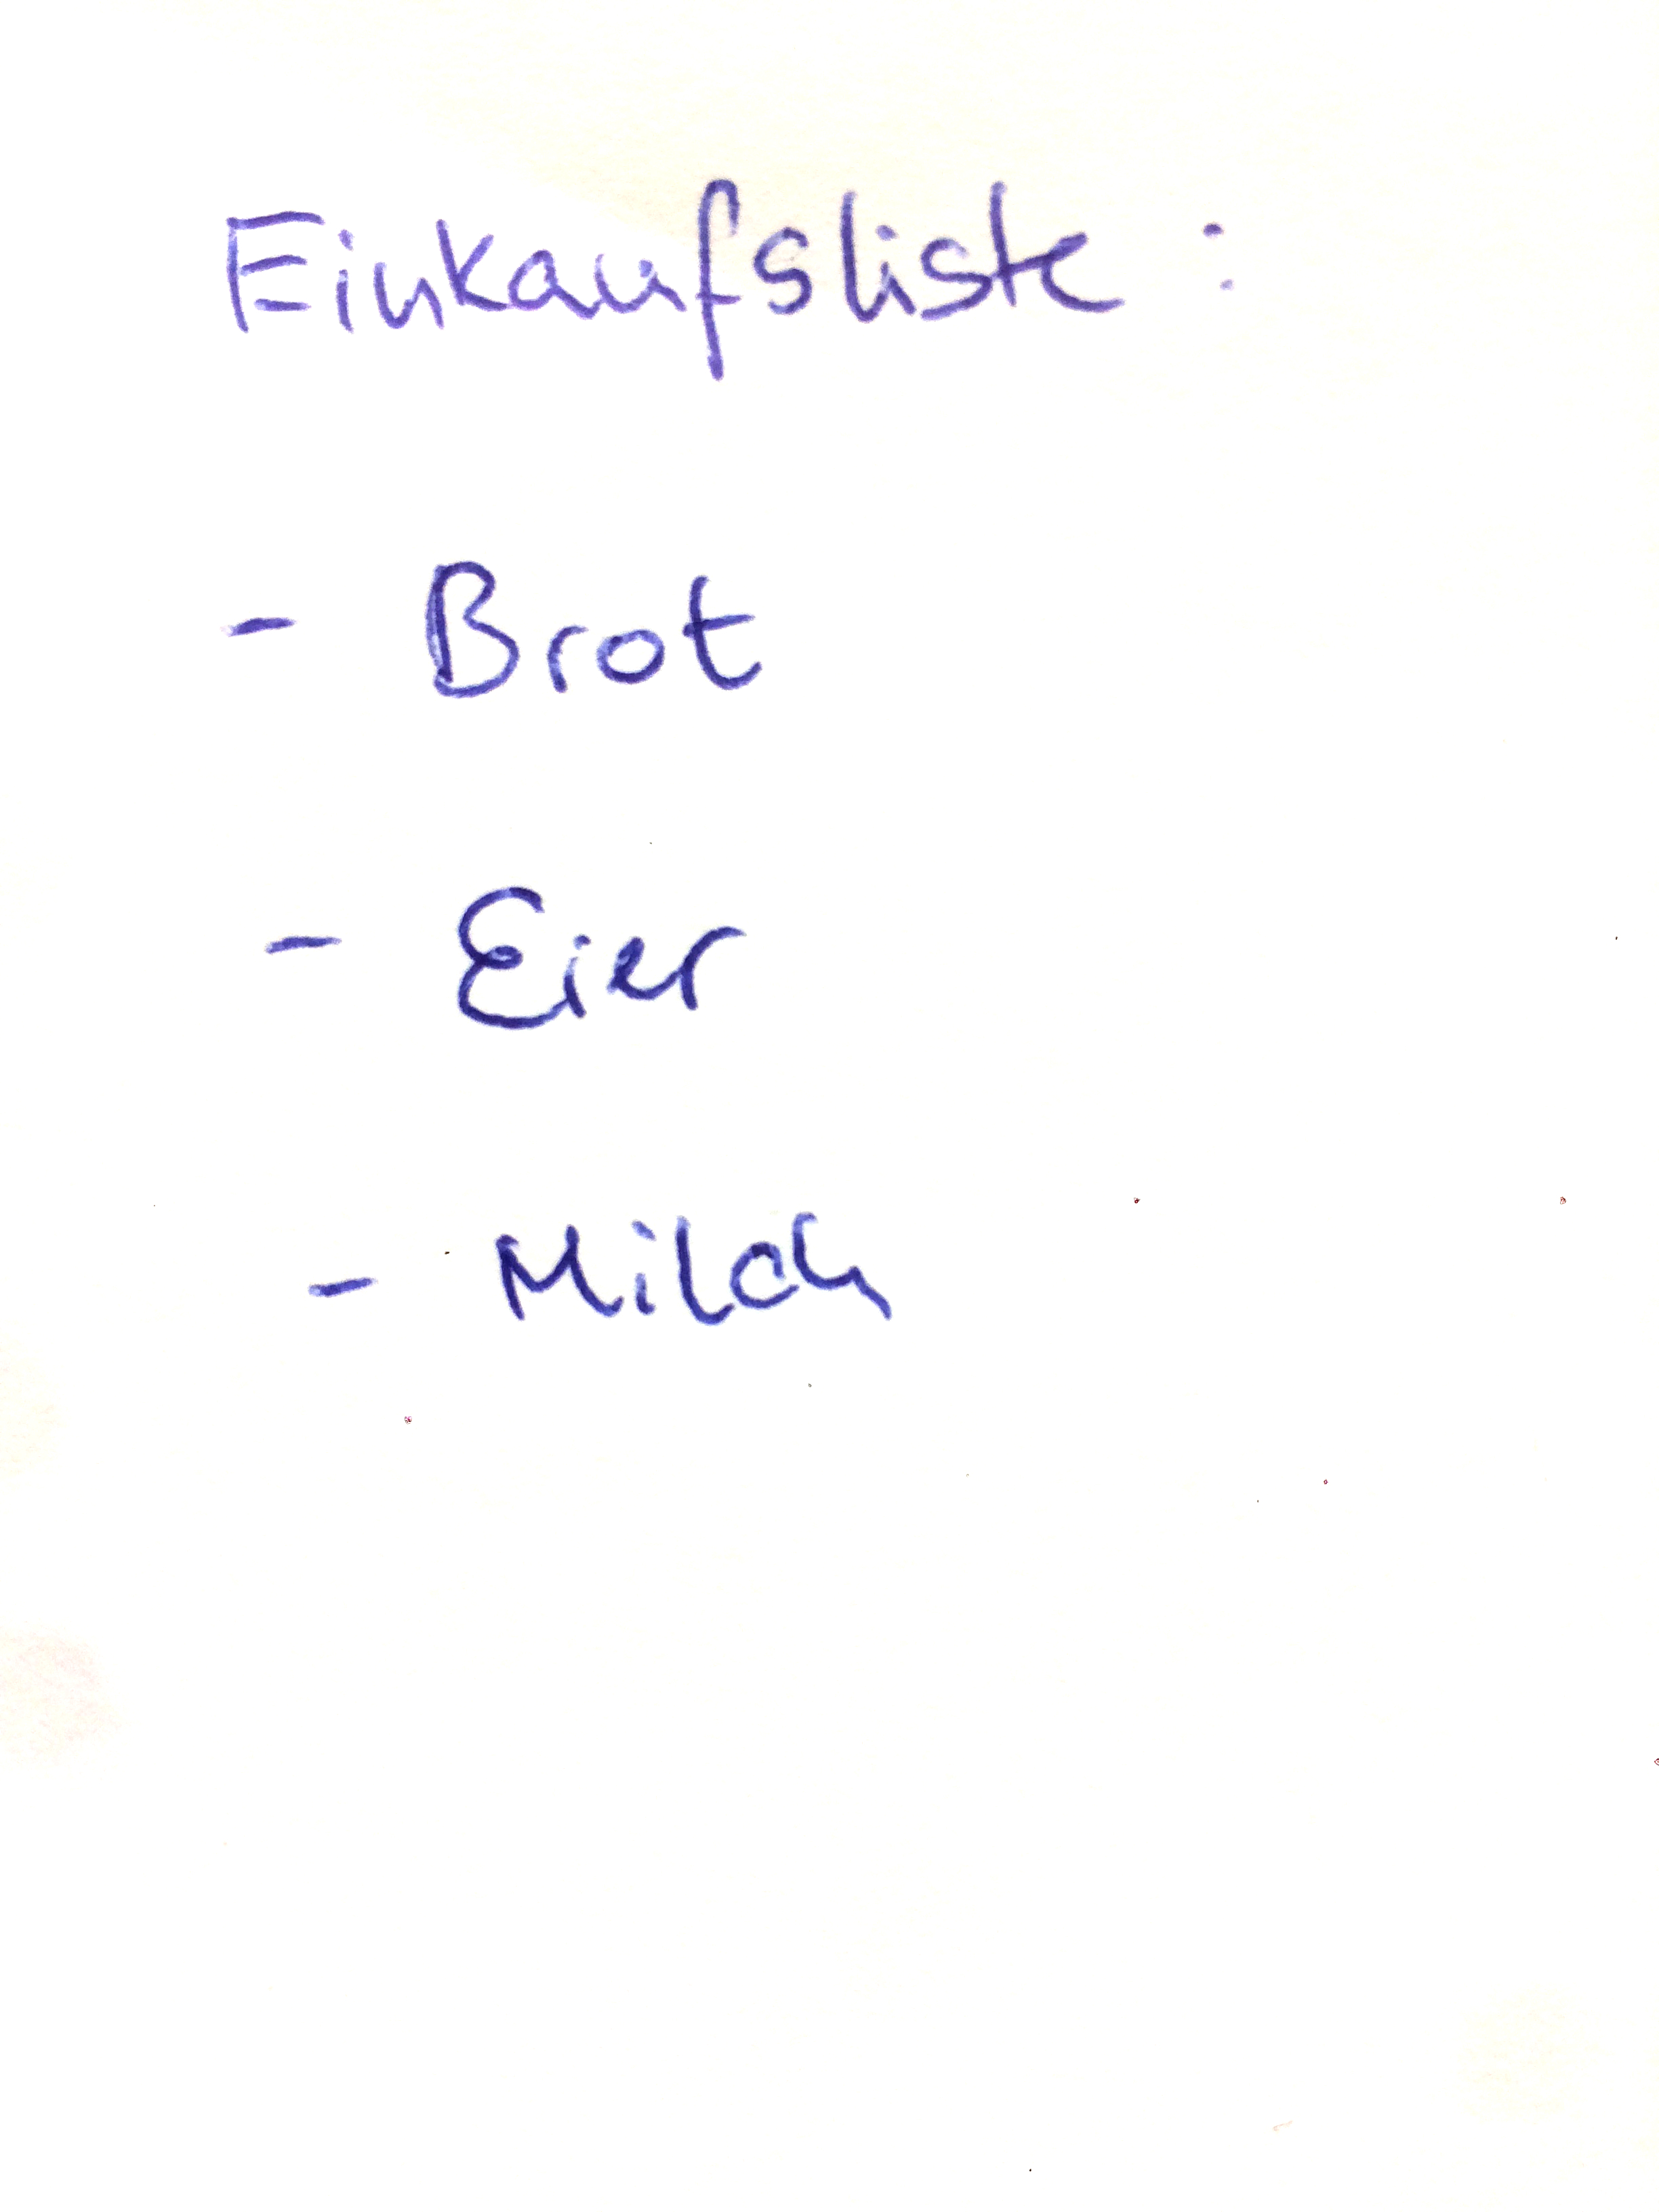 Einkaufsliste :
- Brot
- Eier
- Milch